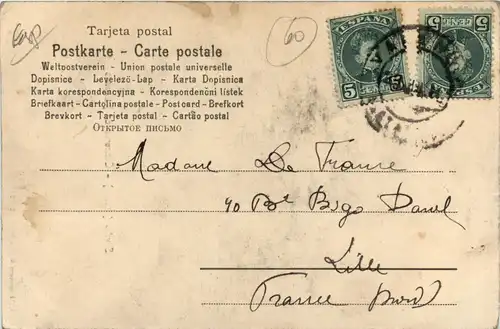 Tarjeta postal
Postkarte – Carte postale
Weltpostverein – Union postale universelle
Dopisnice - Levelező-Lap - Karta Dopisnica
Karta korespondencyjna - Korespondenční lístek
Briefkaart - Cartolina postale - Postcard - Brefkort
Brevkort - Tarjeta postal - Cartão postal
ОТКРЫТОЕ ПИСЬМО
60
ESPAÑA
5 CENT 5
5 CENT 5
Madame De France
40 Bd Bigo Danel
Lille
France (Nord)